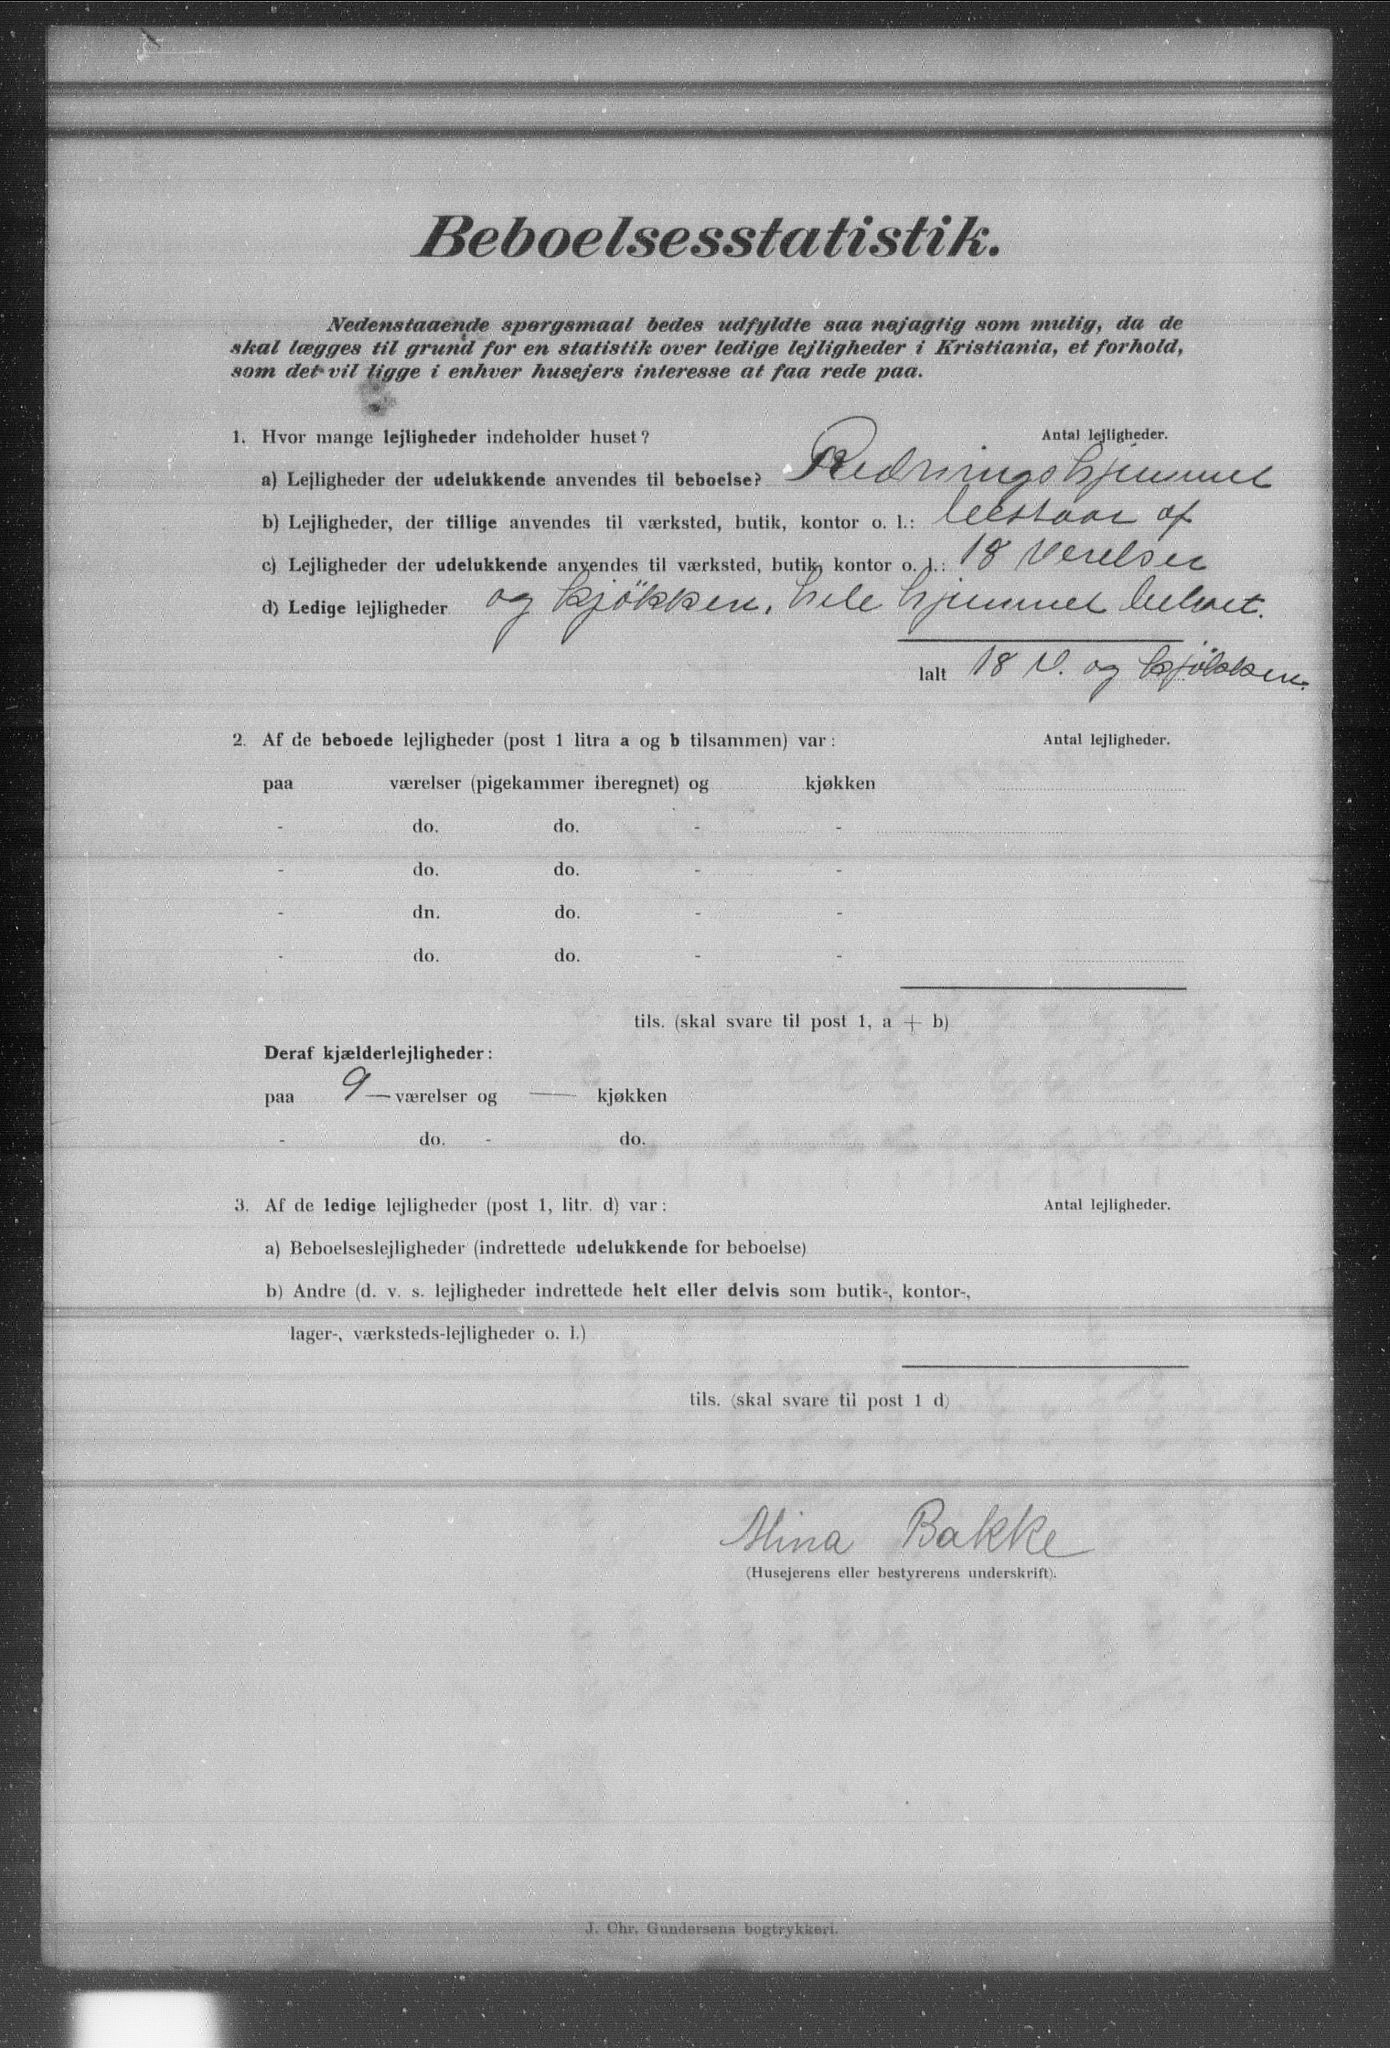 Beboelsesstatistik.
Nedenstaaende spørgsmaal bedes udfyldte saa nøjagtig som mulig, da de
skal lægges til grund for en statistik over ledige lejligheder i Kristiania, et forhold,
som det vil ligge i enhver husejers interesse at faa rede paa.
1. Hvor mange lejligheder indeholder huset? Antal lejligheder.
a) Lejligheder der udelukkende anvendes til beboelse? Redningshjemmet
b) Lejligheder, der tillige anvendes til værksted, butik, kontor o. l.: bestaar af
c) Lejligheder der udelukkende anvendes til værksted, butik, kontor o. l.: 18 Værelser
d) Ledige lejligheder og kjökken, hele hjemmet beboet.
Ialt 18 V. og kjökken.
2. Af de beboede lejligheder (post 1 litra a og b tilsammen) var: Antal lejligheder.
paa værelser (pigekammer iberegnet) og kjøkken
- do. do. - -
- do. do. - -
- dn. do. - -
- do. do. - -
tils. (skal svare til post 1, a + b)
Deraf kjælderlejligheder:
paa 9 — værelser og — kjøkken
- do. - do.
3. Af de ledige lejligheder (post 1, litr. d) var: Antal lejligheder.
a) Beboelseslejligheder (indrettede udelukkende for beboelse)
b) Andre (d. v. s. lejligheder indrettede helt eller delvis som butik-, kontor-,
lager-, værksteds-lejligheder o. l.)
tils. (skal svare til post 1 d)
Mina Bakke
(Husejerens eller bestyrerens underskrift).
J. Chr. Gundersens bogtrykkeri.